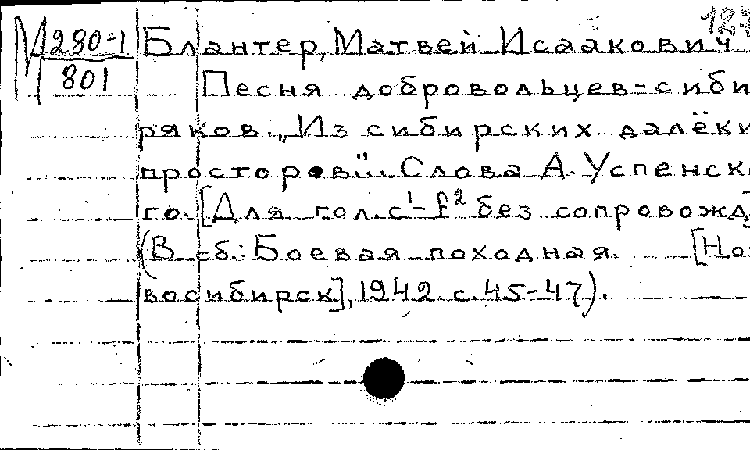 123
М 280-1
801
Блантер, Матвей Исаакович
Песня добровольцев-сиби
ряков „Из сибирских далёки
просторов". Слова А. Успенск
го. [Для гол. c¹-f² без сопровожд]
(В сб: Боевая походная. [Но
восибирск], 1942. с. 45-47).